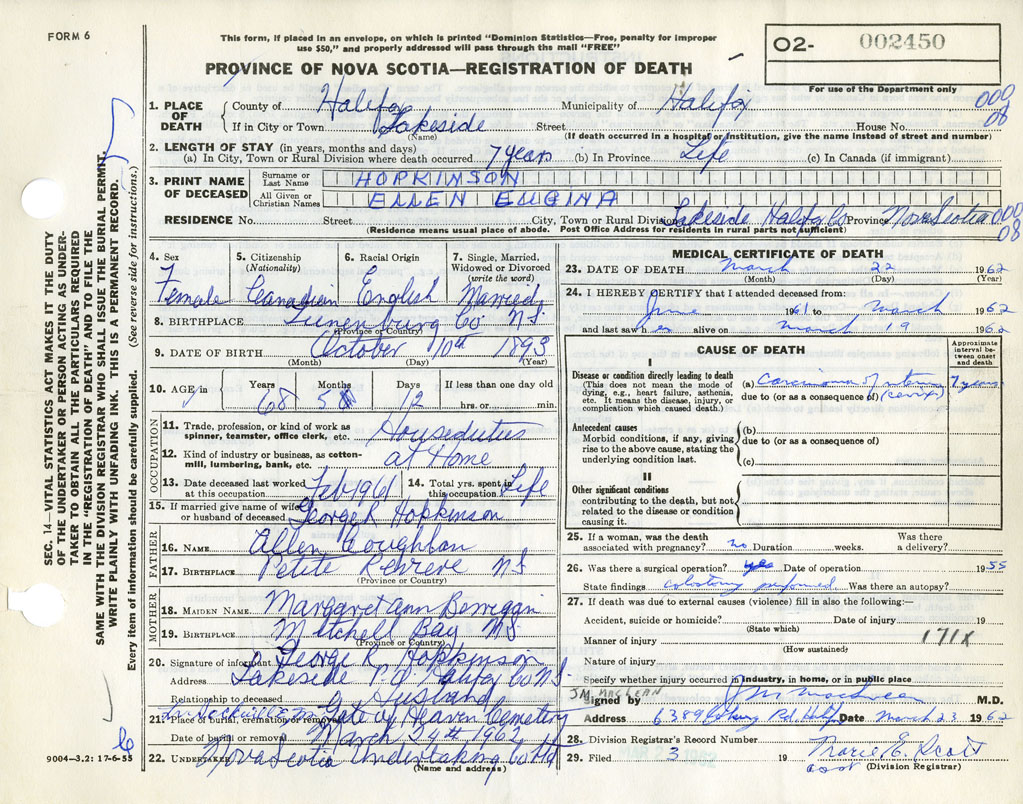 FORM 6
This form, if placed in an envelope, on which is printed "Dominion Statistics—Free, penalty for improper
use $50," and properly addressed will pass through the mail "FREE"
O2- 002450
For use of the Department only
PROVINCE OF NOVA SCOTIA—REGISTRATION OF DEATH
000
08
1. PLACE OF DEATH
County of Halifax Municipality of Halifax
If in City or Town Lakeside Street House No.
(Name) (If death occurred in a hospital or institution, give the name instead of street and number)
2. LENGTH OF STAY (in years, months and days)
(a) In City, Town or Rural Division where death occurred 7 years (b) In Province Life (c) In Canada (if immigrant)
3. PRINT NAME OF DECEASED
Surname or Last Name HOPKINSON
All Given or Christian Names ELLEN EUGINA
RESIDENCE No. Street City, Town or Rural Division Lakeside Halifax Co Province Nova Scotia 000
08
(Residence means usual place of abode. Post Office Address for residents in rural parts not sufficient)
4. Sex Female
5. Citizenship (Nationality) Canadian
6. Racial Origin English
7. Single, Married, Widowed or Divorced (write the word) Married
8. BIRTHPLACE Lunenburg Co NS.
(Province or Country)
9. DATE OF BIRTH October 10th 1893
(Month) (Day) (Year)
10. AGE in Years 68 Months 5 Days 12 If less than one day old hrs. or min.
OCCUPATION
11. Trade, profession, or kind of work as spinner, teamster, office clerk, etc. Houseduties
12. Kind of industry or business, as cotton-mill, lumbering, bank, etc. at Home
13. Date deceased last worked at this occupation Feb 1961 14. Total yrs. spent in this occupation Life
15. If married give name of wife or husband of deceased George R Hopkinson
FATHER
16. NAME Allen Coughlan
17. BIRTHPLACE Petite Reviere NS
(Province or Country)
MOTHER
18. MAIDEN NAME Margaret Ann
19. BIRTHPLACE Mitchell Bay NS
(Province or Country)
20. Signature of informant George R Hopkinson
Address Lakeside P.O. Halifax Co NS.
Relationship to deceased Husband
21. Place of burial, cremation or removal Gate of Heaven Cemetery
Date of burial or removal March 24th 1962
22. UNDERTAKER Nova Scotia Undertaking Co Ltd
(Name and address)
MEDICAL CERTIFICATE OF DEATH
23. DATE OF DEATH March 22 1962
(Month) (Day) (Year)
24. I HEREBY CERTIFY that I attended deceased from:
June 1961 to March 1962
and last saw her alive on March 19 1962
CAUSE OF DEATH
Approximate interval between onset and death
I
Disease or condition directly leading to death
(This does not mean the mode of dying, e.g., heart failure, asthenia, etc. It means the disease, injury, or complication which caused death.)
(a) Carcinoma of uterus 7 years
due to (or as a consequence of) (cervix)
Antecedent causes
Morbid conditions, if any, giving rise to the above cause, stating the underlying condition last.
(b)
due to (or as a consequence of)
(c)
II
Other significant conditions
contributing to the death, but not related to the disease or condition causing it.
25. If a woman, was the death associated with pregnancy? no Duration weeks. Was there a delivery?
26. Was there a surgical operation? yes Date of operation 1955
State findings colostomy performed Was there an autopsy?
27. If death was due to external causes (violence) fill in also the following:—
Accident, suicide or homicide? Date of injury 19
(State which)
Manner of injury 171X
(How sustained)
Nature of injury
Specify whether injury occurred in industry, in home, or in public place
J M MACLEAN
Signed by J M MacLean M.D.
Address 6389 Coburg Rd. Halifax Date March 23 1962
28. Division Registrar's Record Number
29. Filed 3 19 E. Scott
(Division Registrar)
SEC. 14—VITAL STATISTICS ACT MAKES IT THE DUTY
OF THE UNDERTAKER OR PERSON ACTING AS UNDER-
TAKER TO OBTAIN ALL THE PARTICULARS REQUIRED
IN THE "REGISTRATION OF DEATH" AND TO FILE THE
SAME WITH THE DIVISION REGISTRAR WHO SHALL ISSUE THE BURIAL PERMIT.
WRITE PLAINLY WITH UNFADING INK. THIS IS A PERMANENT RECORD.
Every item of information should be carefully supplied. (See reverse side for instructions.)
6
9004—3.2: 17-6-55